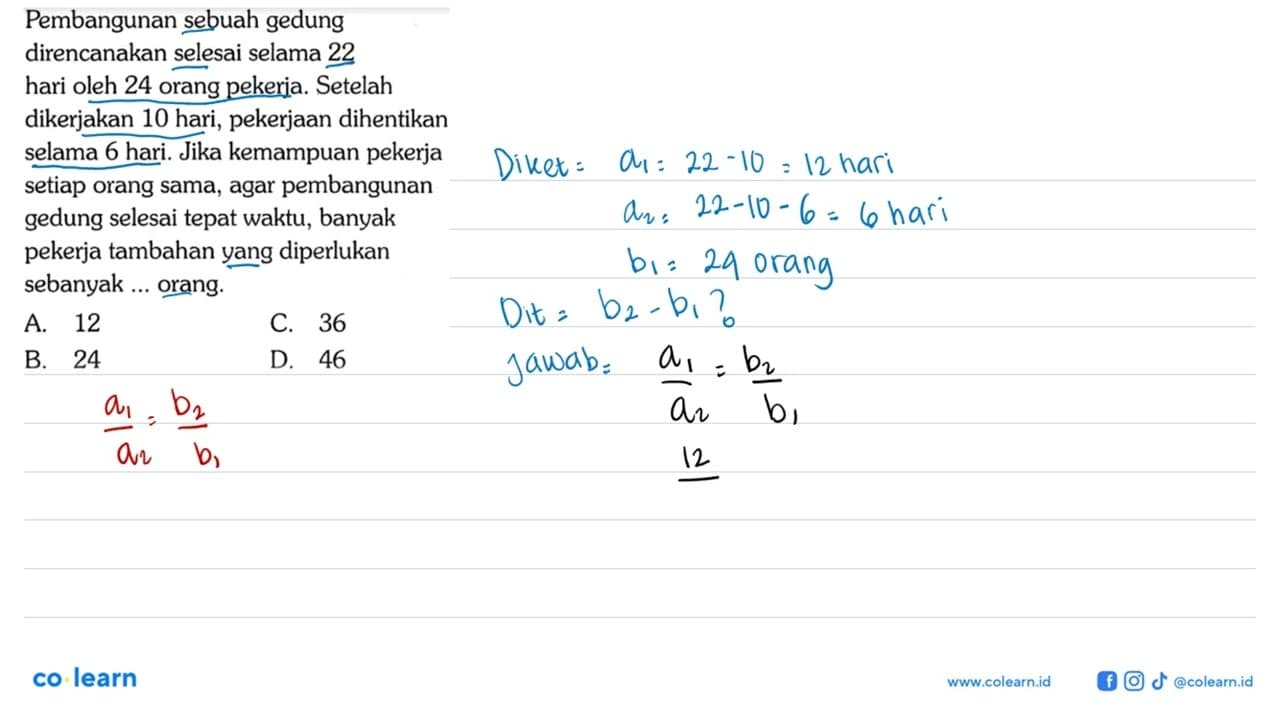 Pembangunan sebuah gedung
direncanakan selesai selama 22
hari oleh 24 orang pekerja. Setelah
dikerjakan 10 hari, pekerjaan dihentikan
selama 6 hari. Jika kemampuan pekerja
setiap orang sama, agar pembangunan
gedung selesai tepat waktu, banyak
pekerja tambahan yang diperlukan
sebanyak ... orang.
A. 12 C. 36
B. 24 D. 46
a₁/a₂ = b₂/b₁
Diket = a₁ = 22 - 10 = 12 hari
a₂ = 22 - 10 - 6 = 6 hari
b₁ = 24 orang
Dit = b₂ - b₁ ?
Jawab = a₁/a₂ = b₂/b₁
12
co learn
www.colearn.id @colearn.id